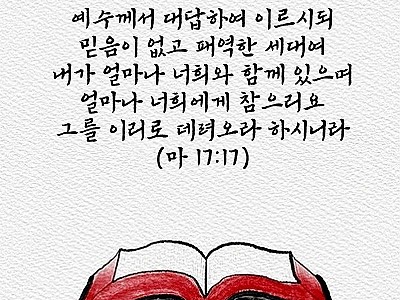 예수께서 대답하여 이르시되
믿음이 없고 패역한 세대여
내가 얼마나 너희와 함께 있으며
얼마나 너희에게 참으리요
그를 이리로 데려오라 하시니라
(마 17:17)